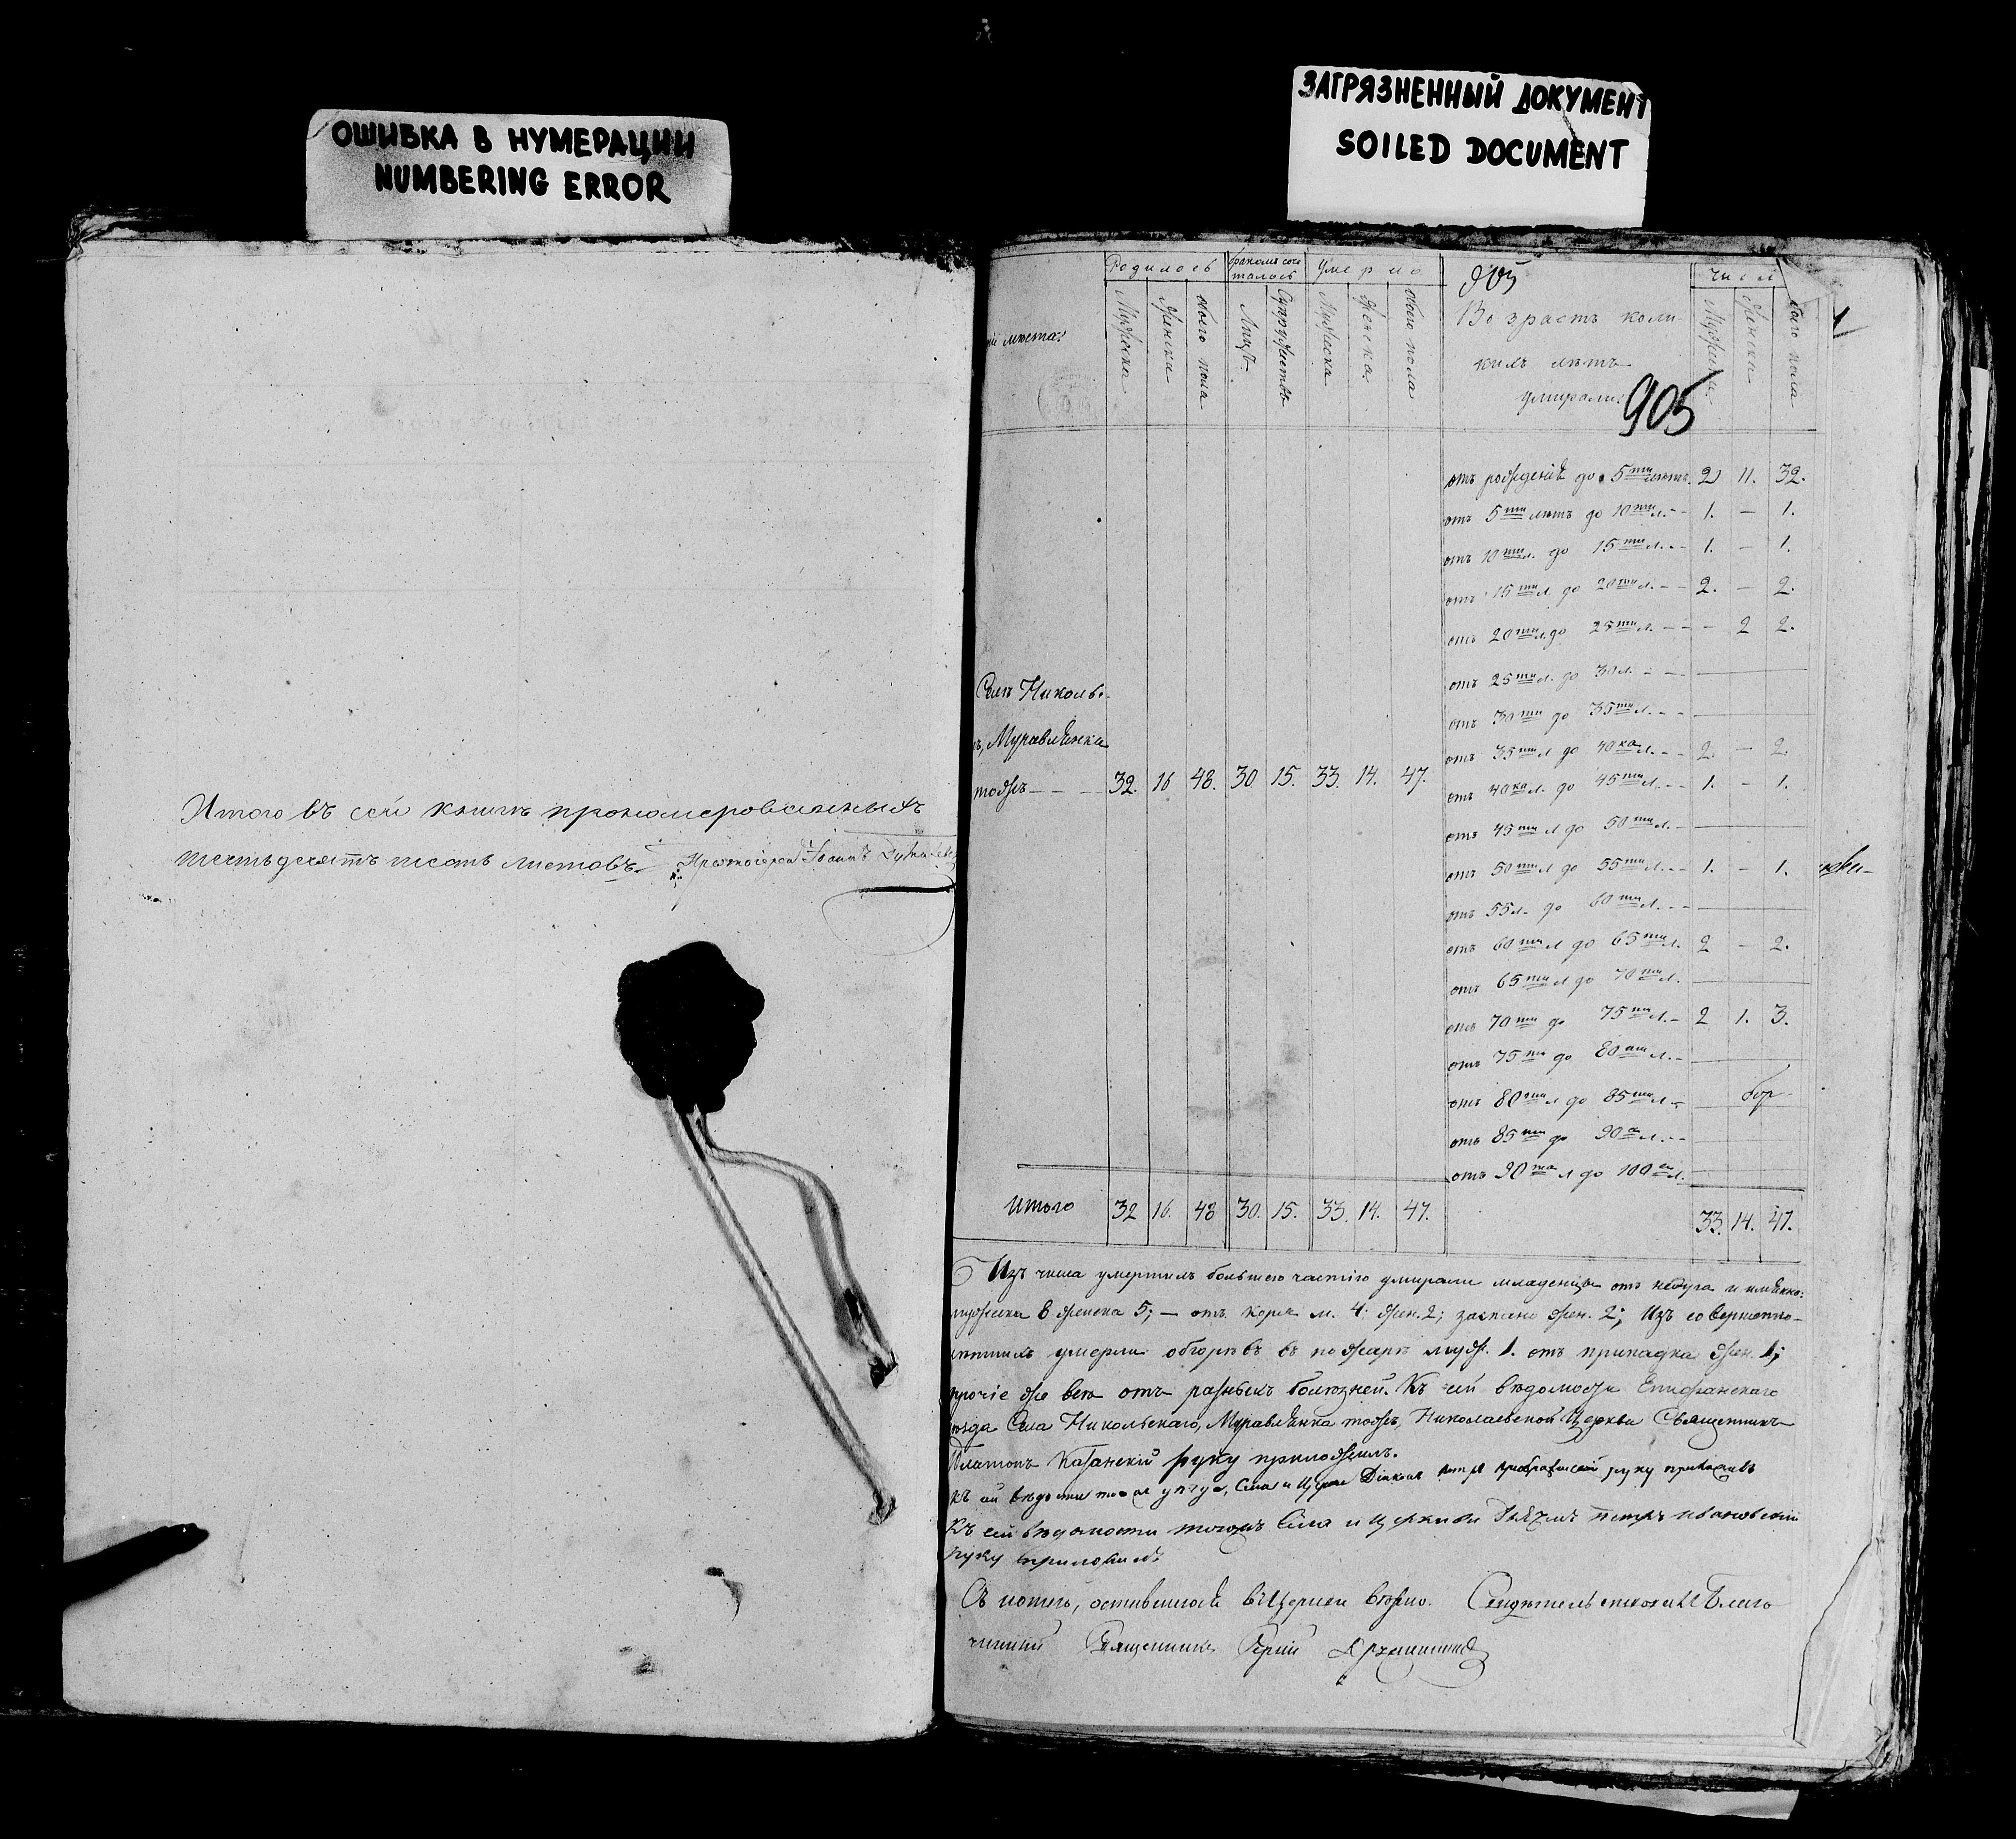 ОШИБКА В НУМЕРАЦИИ
NUMBERING ERROR
ЗАГРЯЗНЕННЫЙ ДОКУМЕНТ
SOILED DOCUMENT
Итого въ сей книгѣ прономерованныхъ
шестьдесятъ шесть листовъ. Протоіерей Іоаннъ
Родилось
Бракомъ соче
талось
Умерло
905
Числ
мѣста:
Мужеска
Женска
Обоего пола
Лицъ
Супружествъ
Мужеска
Женска
Обоего пола
Возрастъ коли
кихъ лѣтъ
умирали:
905
Мужеска
Женска
Обоего пола
отъ рожденія до 5ти лѣтъ. 21 11. 32.
отъ 5ти лѣтъ до 10ти л. - - 1. - 1.
отъ 10ти л. до 15ти л. - - 1. - 1.
отъ 15ти л. до 20ти л. - - 2. - 2.
отъ 20ти л. до 25ти л. - - - 2 2.
отъ 25ти л. до 30 л. - - -
отъ 30ти до 35ти л. - -
отъ 35ти л до 40ка л. - - 2. - 2.
отъ 40ка л. до 45ти л. - - 1. - 1.
отъ 45ти л до 50ти л. -
отъ 50ти л до 55ти л. - - 1. - 1.
отъ 55 л. до 60ти л. - -
отъ 60ти л до 65ти л. 2 - 2.
отъ 65ти л до 70ти л.
отъ 70ти до 75ти л. - 2 1. 3.
отъ 75ти до 80ти л. -
отъ 80ти л до 85ти л -
отъ 85ти до 90а л. - -
отъ 90та л до 100а л.
Селѣ Николь
, Муравлѣнка
тожъ - - - 32. 16 48. 30 15. 33. 14. 47.
Итого 32 16. 48 30. 15. 33. 14. 47. 33. 14. 47.
Изъ числа умершихъ большею частію умирали младенцы отъ недуга и имѣнно:
мужеска 8 женска 5; - отъ коря м. 4. жен. 2; заспано жен. 2; Изъ совершенно-
лѣтнихъ умерли обгорѣвъ въ пожарѣ муж. 1. отъ припадка жен. 1;
прочіе же всѣ отъ разныхъ болѣзней. Къ сей вѣдомости Епифанскаго
уѣзда Села Никольскаго, Муравлѣнка тожъ, Николаевской Церкви Священникъ
Платонъ Казанскій руку приложилъ.
Къ сей вѣдомости тогожъ уѣзда, Села и Церкви Діаконъ Петръ Преображенскій руку приложилъ
Къ сей вѣдомости тогожъ Села и церкви Дьячекъ Петръ Ивановскій
руку приложилъ
Съ копіею, оставшеюся въ Церкви вѣрно. Свидѣтельствовалъ Благо
чинный Священникъ